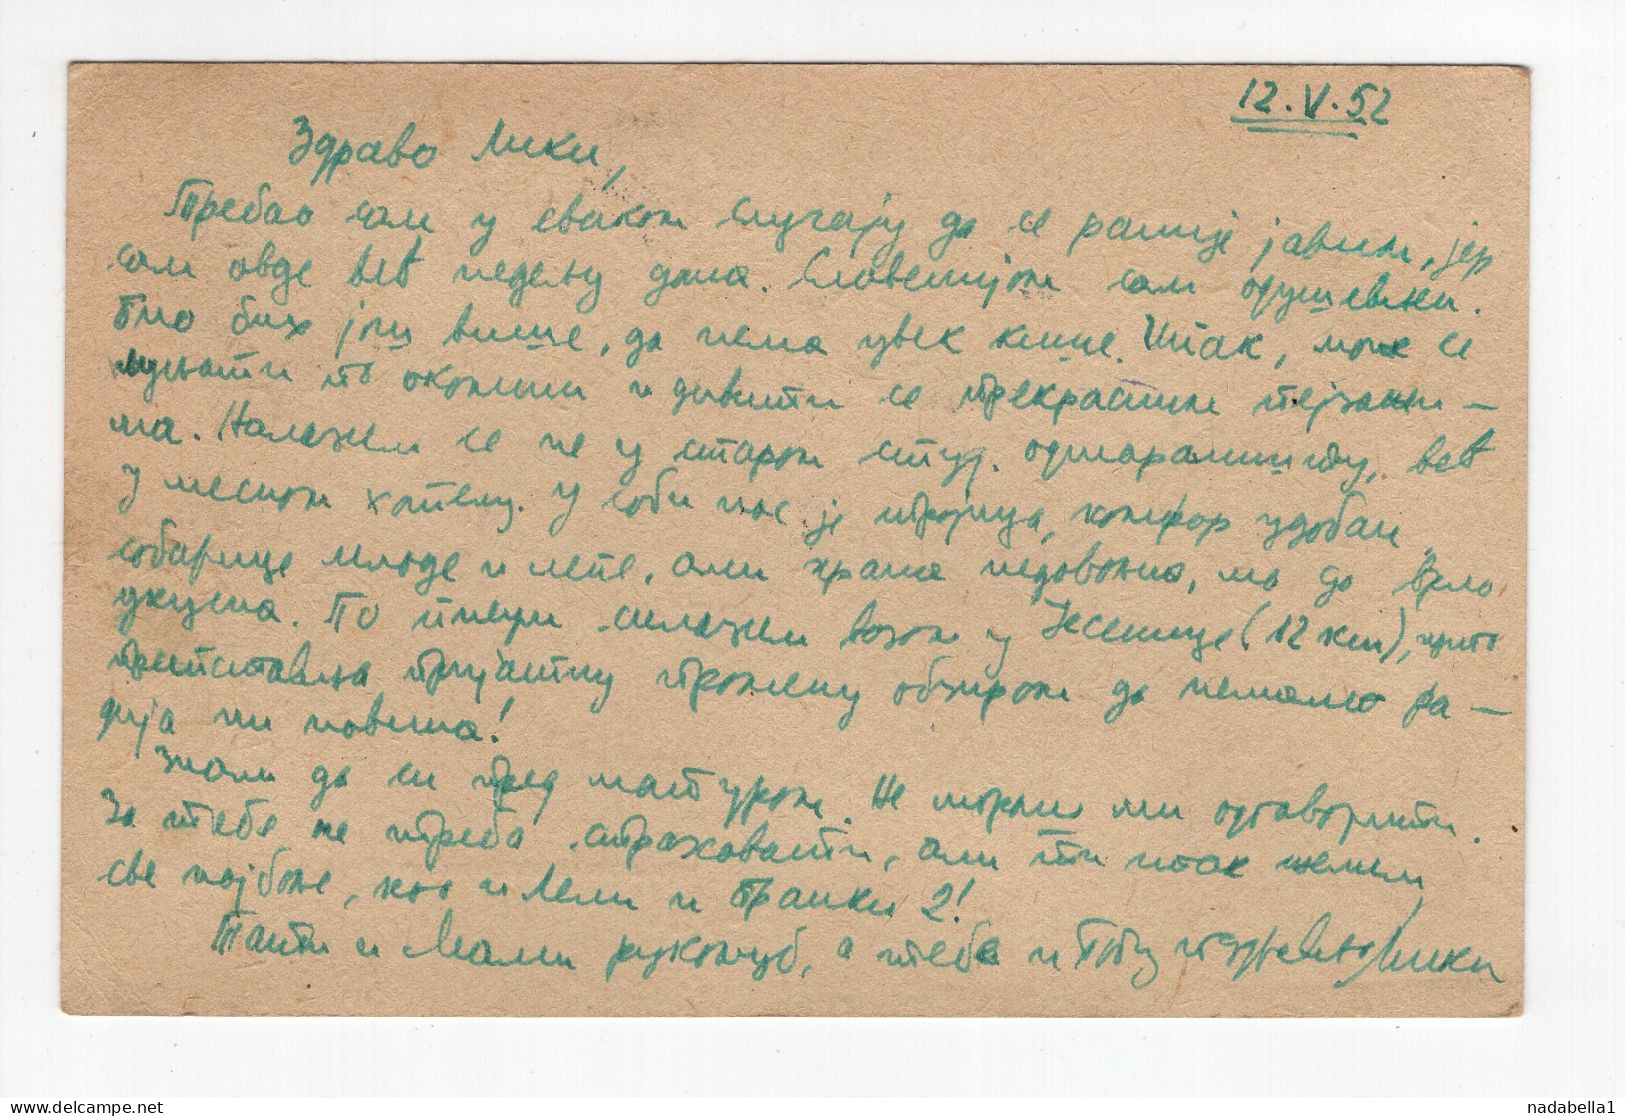 12.V.52
Здраво Мики,
Требао сам у сваком случају да се раније јавим, јер
сам овде већ недељу дана. Словенијом сам одушевљен.
Био бих још више, да нема увек кише. Ипак, може се
муњати по околини и дивити се прекрасним пејзажи-
ма. Налазим се не у старом студ. одмаралишту, већ
у месном хотелу. У соби нас је тројица, комфор удобан,
собарице младе и лепе, али храна недовољна, ма да врло
укусна. По пливу силазим возом у Јесенице (12 км), што
претставља пријатну промену обзиром да немамо ра-
дија ни новина!
Знам да си пред матуром. Не мораш ми одговорити.
За тебе не треба страховати, али ти ипак желим
све најбоље, као и Лели и Бранки 2!
Тати и Мами рукољуб, а тебе и поздравља Мики
nadabella1